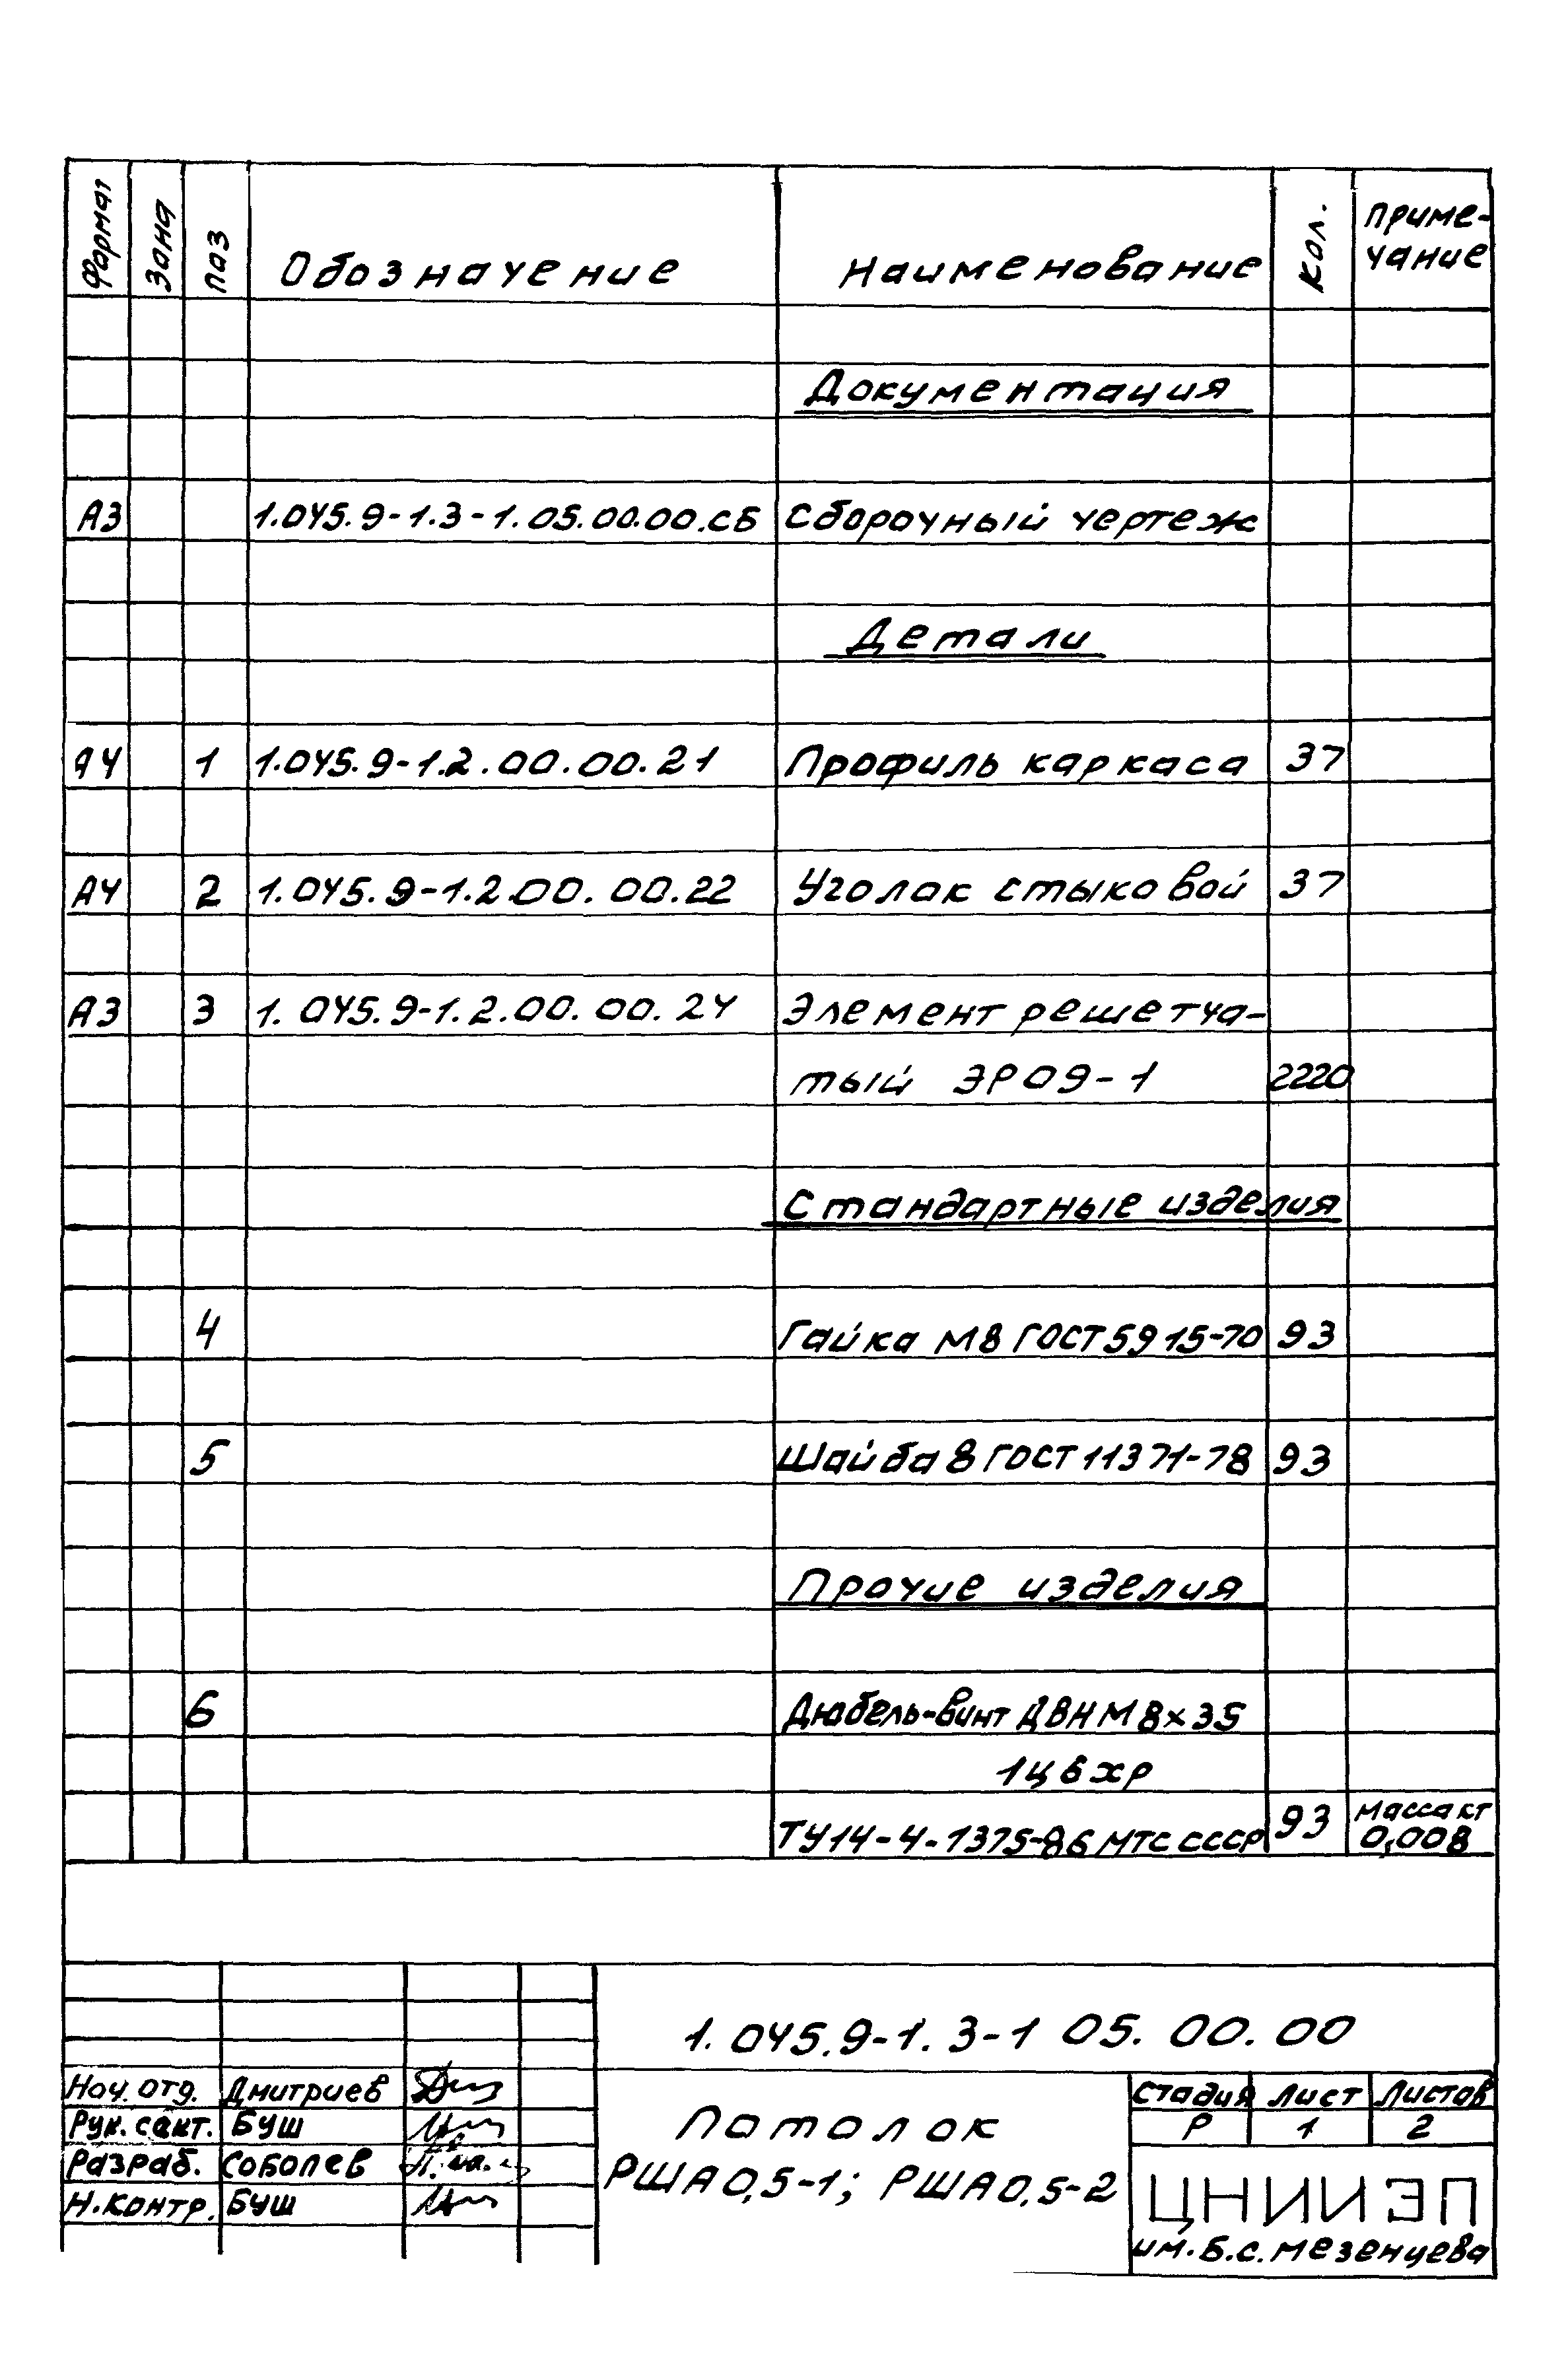 Формат Зона Поз Обозначение Наименование Кол. Приме-
чание
Документация
А3 1.045.9-1.3-1.05.00.00.СБ Сборочный чертеж
Детали
А4 1 1.045.9-1.2.00.00.21 Профиль каркаса 37
А4 2 1.045.9-1.2.00.00.22 Уголок стыковой 37
А3 3 1.045.9-1.2.00.00.24 Элемент решетча-
тый ЭР09-1 2220
Стандартные изделия
4 Гайка М8 ГОСТ 5915-70 93
5 Шайба 8 ГОСТ 11371-78 93
Прочие изделия
6 Дюбель-винт ДВН М8×35
1ц6хр
ТУ14-4-1375-86 МТС СССР 93 масса кг
0,008
1.045.9-1.3-1 05.00.00
Нач. отд. Дмитриев
Рук. сект. Буш
Разраб. Соболев
Н.контр. Буш
Потолок
РША0,5-1; РША0,5-2
Стадия Лист Листов
Р 1 2
ЦНИИЭП
им. Б.С. Мезенцева